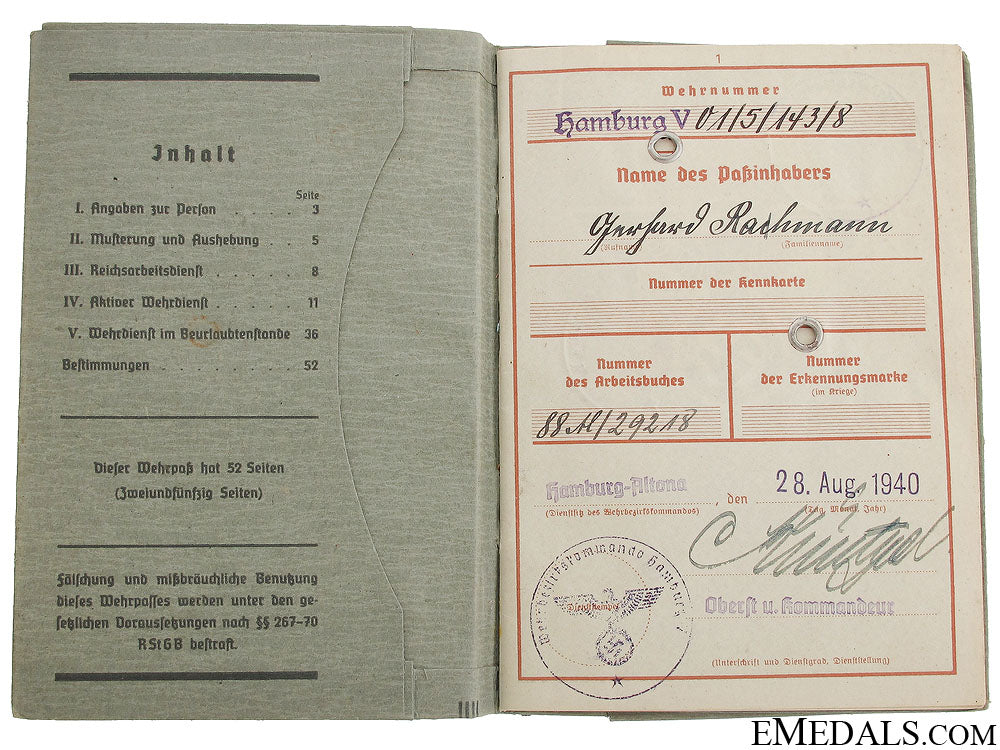 Inhalt
Seite
I. Angaben zur Person . . . . . 3
II. Musterung und Aushebung . . 5
III. Reichsarbeitsdienst . . . . . . 8
IV. Aktiver Wehrdienst . . . . . . 11
V. Wehrdienst im Beurlaubtenstande 36
Bestimmungen . . . . . . . . . 52
Dieser Wehrpaß hat 52 Seiten
(Zweiundfünfzig Seiten)
Fälschung und mißbräuchliche Benutzung
dieses Wehrpasses werden unter den ge-
setzlichen Voraussetzungen nach §§ 267-70
RStGB bestraft.
1
Wehrnummer
Hamburg V 01/5/143/8
Name des Paßinhabers
Gerhard Rachmann
(Rufname) (Familienname)
Nummer der Kennkarte
Nummer
des Arbeitsbuches
88 /29218
Nummer
der Erkennungsmarke
(im Kriege)
Hamburg-Altona, den 28. Aug. 1940
(Dienstsitz des Wehrbezirkskommandos) (Tag, Monat, Jahr)
Wehrbezirkskommando Hamburg
(Dienststempel)
Oberst u. Kommandeur
(Unterschrift und Dienstgrad, Dienststellung)
EMEDALS.COM